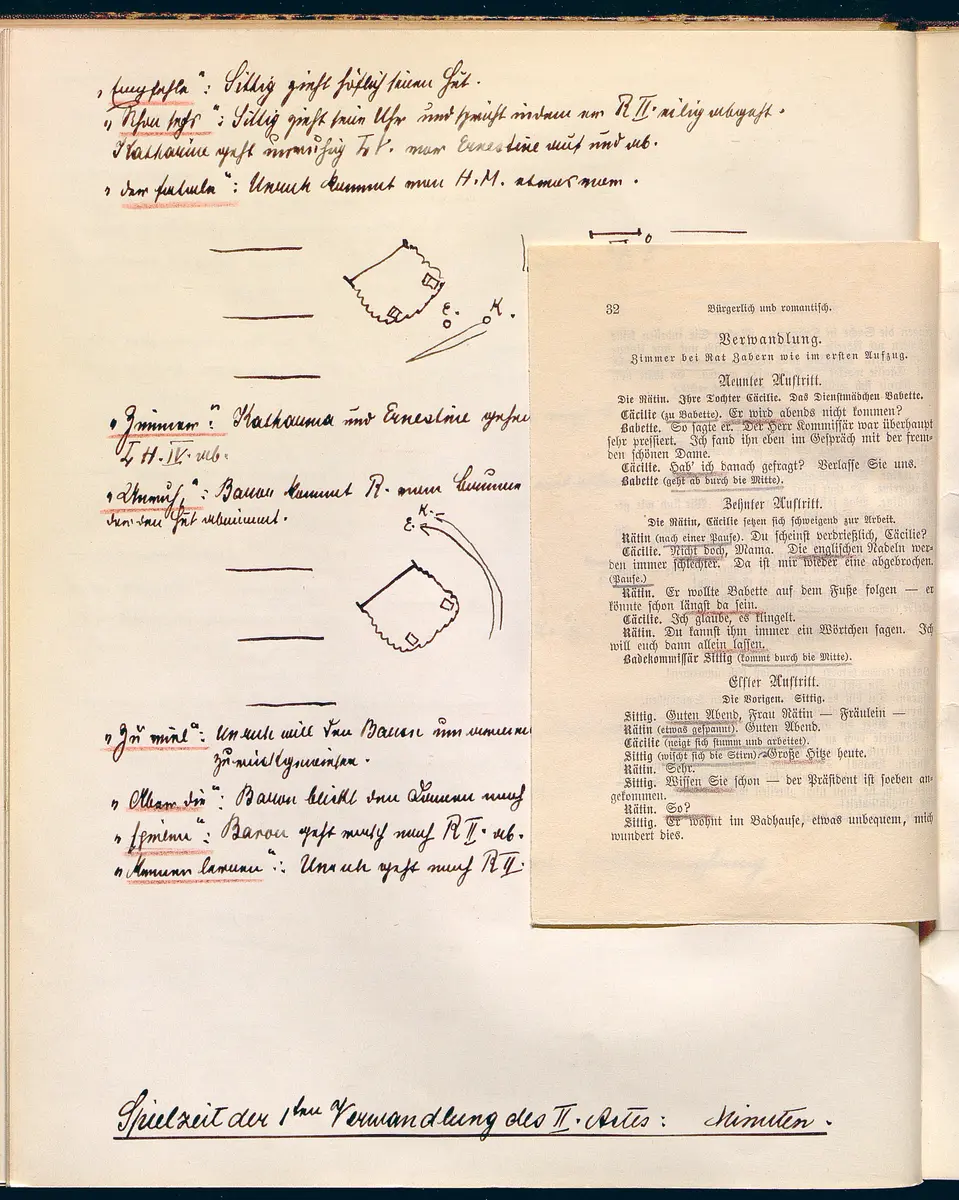 „Empfehle“: Sittig zieht höflich seinen Hut.
„Schon sechs“: Sittig zieht seine Uhr und spricht indem er R II. eilig abgeht.
Katharine geht unruhig L V. vor Ernestine auf und ab.
„der fatale“: Unruh kommt von H. M. etwas vor.
E. K.
„Zimmer“: Katharina und Ernestine gehen
L H. IV. ab.
„Unruh,“: Baron kommt R. vom Baume
der den Hut abnimmt.
K.
E.
„Zu viel“: Unruh will den Baron umarmen
zurückgewiesen.
„Aber die“: Baron blickt den Damen nach
„spielen“: Baron geht rasch nach R II. ab.
„kennen lernen“: Unruh geht nach R II.
Spielzeit der 1ten Verwandlung des II. Actes: Minuten.
32 Bürgerlich und romantisch.
Verwandlung.
Zimmer bei Rat Zabern wie im ersten Aufzug.
Neunter Auftritt.
Die Rätin. Ihre Tochter Cäcilie. Das Dienstmädchen Babette.
Cäcilie (zu Babette). Er wird abends nicht kommen?
Babette. So sagte er. Der Herr Kommissär war überhaupt
sehr pressiert. Ich fand ihn eben im Gespräch mit der frem-
den schönen Dame.
Cäcilie. Hab' ich danach gefragt? Verlasse Sie uns.
Babette (geht ab durch die Mitte).
Zehnter Auftritt.
Die Rätin, Cäcilie setzen sich schweigend zur Arbeit.
Rätin (nach einer Pause). Du scheinst verdrießlich, Cäcilie?
Cäcilie. Nicht doch, Mama. Die englischen Nadeln wer-
den immer schlechter. Da ist mir wieder eine abgebrochen.
(Pause.)
Rätin. Er wollte Babette auf dem Fuße folgen — er
könnte schon längst da sein.
Cäcilie. Ich glaube, es klingelt.
Rätin. Du kannst ihm immer ein Wörtchen sagen. Ich
will euch dann allein lassen.
Badekommissär Sittig (kommt durch die Mitte).
Elfter Auftritt.
Die Vorigen. Sittig.
Sittig. Guten Abend, Frau Rätin — Fräulein —
Rätin (etwas gespannt). Guten Abend.
Cäcilie (neigt sich stumm und arbeitet).
Sittig (wischt sich die Stirn). Große Hitze heute.
Rätin. Sehr.
Sittig. Wissen Sie schon — der Präsident ist soeben an-
gekommen.
Rätin. So?
Sittig. Er wohnt im Badhause, etwas unbequem, mich
wundert dies.